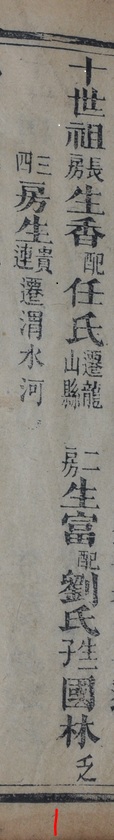 十世祖長房生香配任氏遷龍山縣 二房生富配劉氏生二子國林乏
三四房生貴連遷渭水河